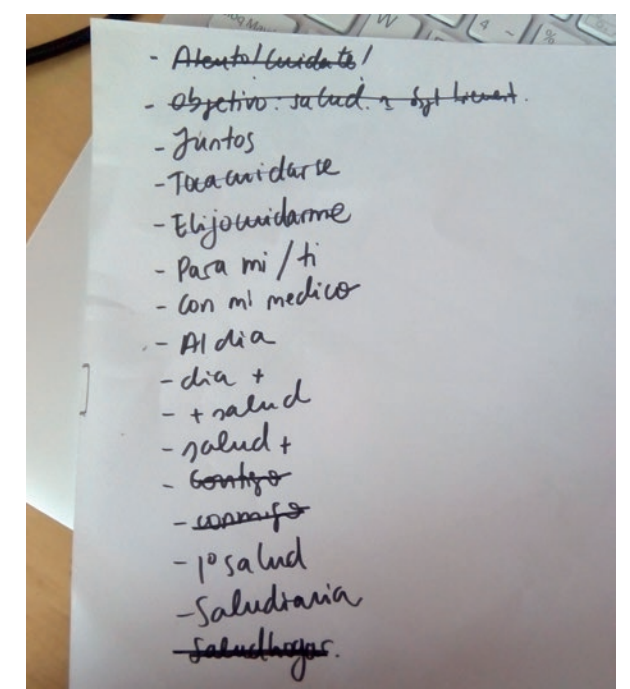 - Atento/Cuidate/
- Objetivo: salud.
- Juntos
- Tocacuidarse
- Elijocuidarme
- Para mi / ti
- Con mi medico
- Al dia
- dia +
- + salud
- salud +
- Contigo
- conmigo
- 1º salud
- Saludiaria
- Saludhogar.